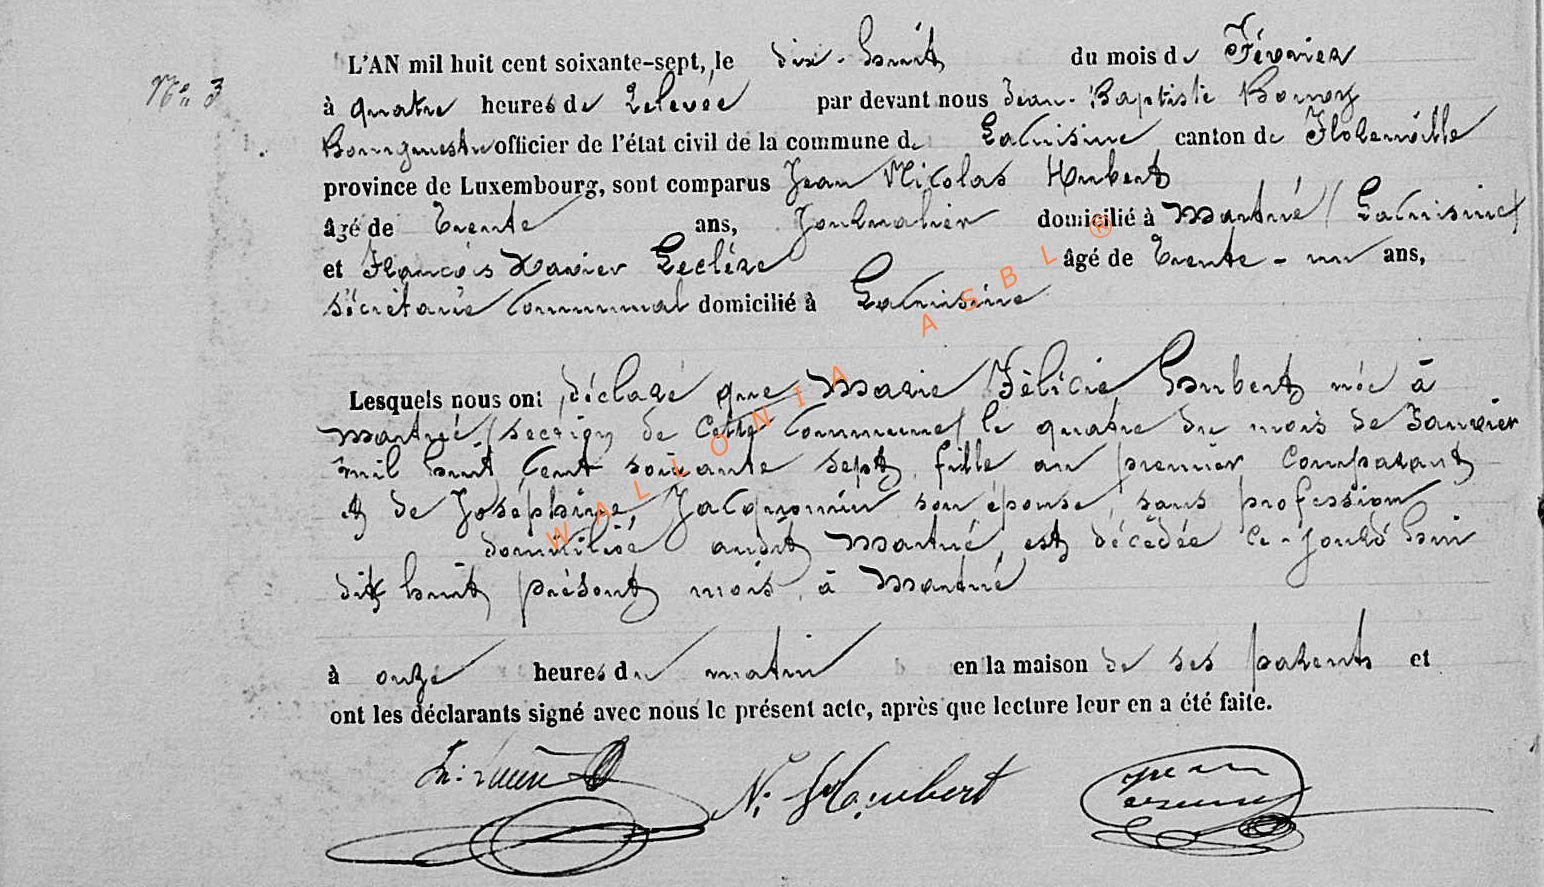 N° 3
L'AN mil huit cent soixante-sept, le dix-huit du mois de Février
à quatre heures de relevée par devant nous Jean-Baptiste
Bourgmestre officier de l'état civil de la commune de Lacuisine, canton de Florenville
province de Luxembourg, sont comparus Jean Nicolas Humbert
âgé de trente ans, Journalier domicilié à Martué (Lacuisine)
et François Xavier Leclère âgé de trente-un ans,
sécrétaire communal domicilié à Lacuisine
Lesquels nous ont déclaré que Marie Félicie Humbert née à
Martué (section de cette commune) le quatre du mois de Janvier
mil huit cent soixante sept, fille au premier comparant
et de Joséphine Jacquemin son épouse, sans profession
domiciliée audit Martué, est décédée ce-jourd'hui
dix huit présent mois, à Martué
à onze heures du matin en la maison de ses parents et
ont les déclarants signé avec nous le présent acte, après que lecture leur en a été faite.
N. Humbert
WALLONIA ASBL ®